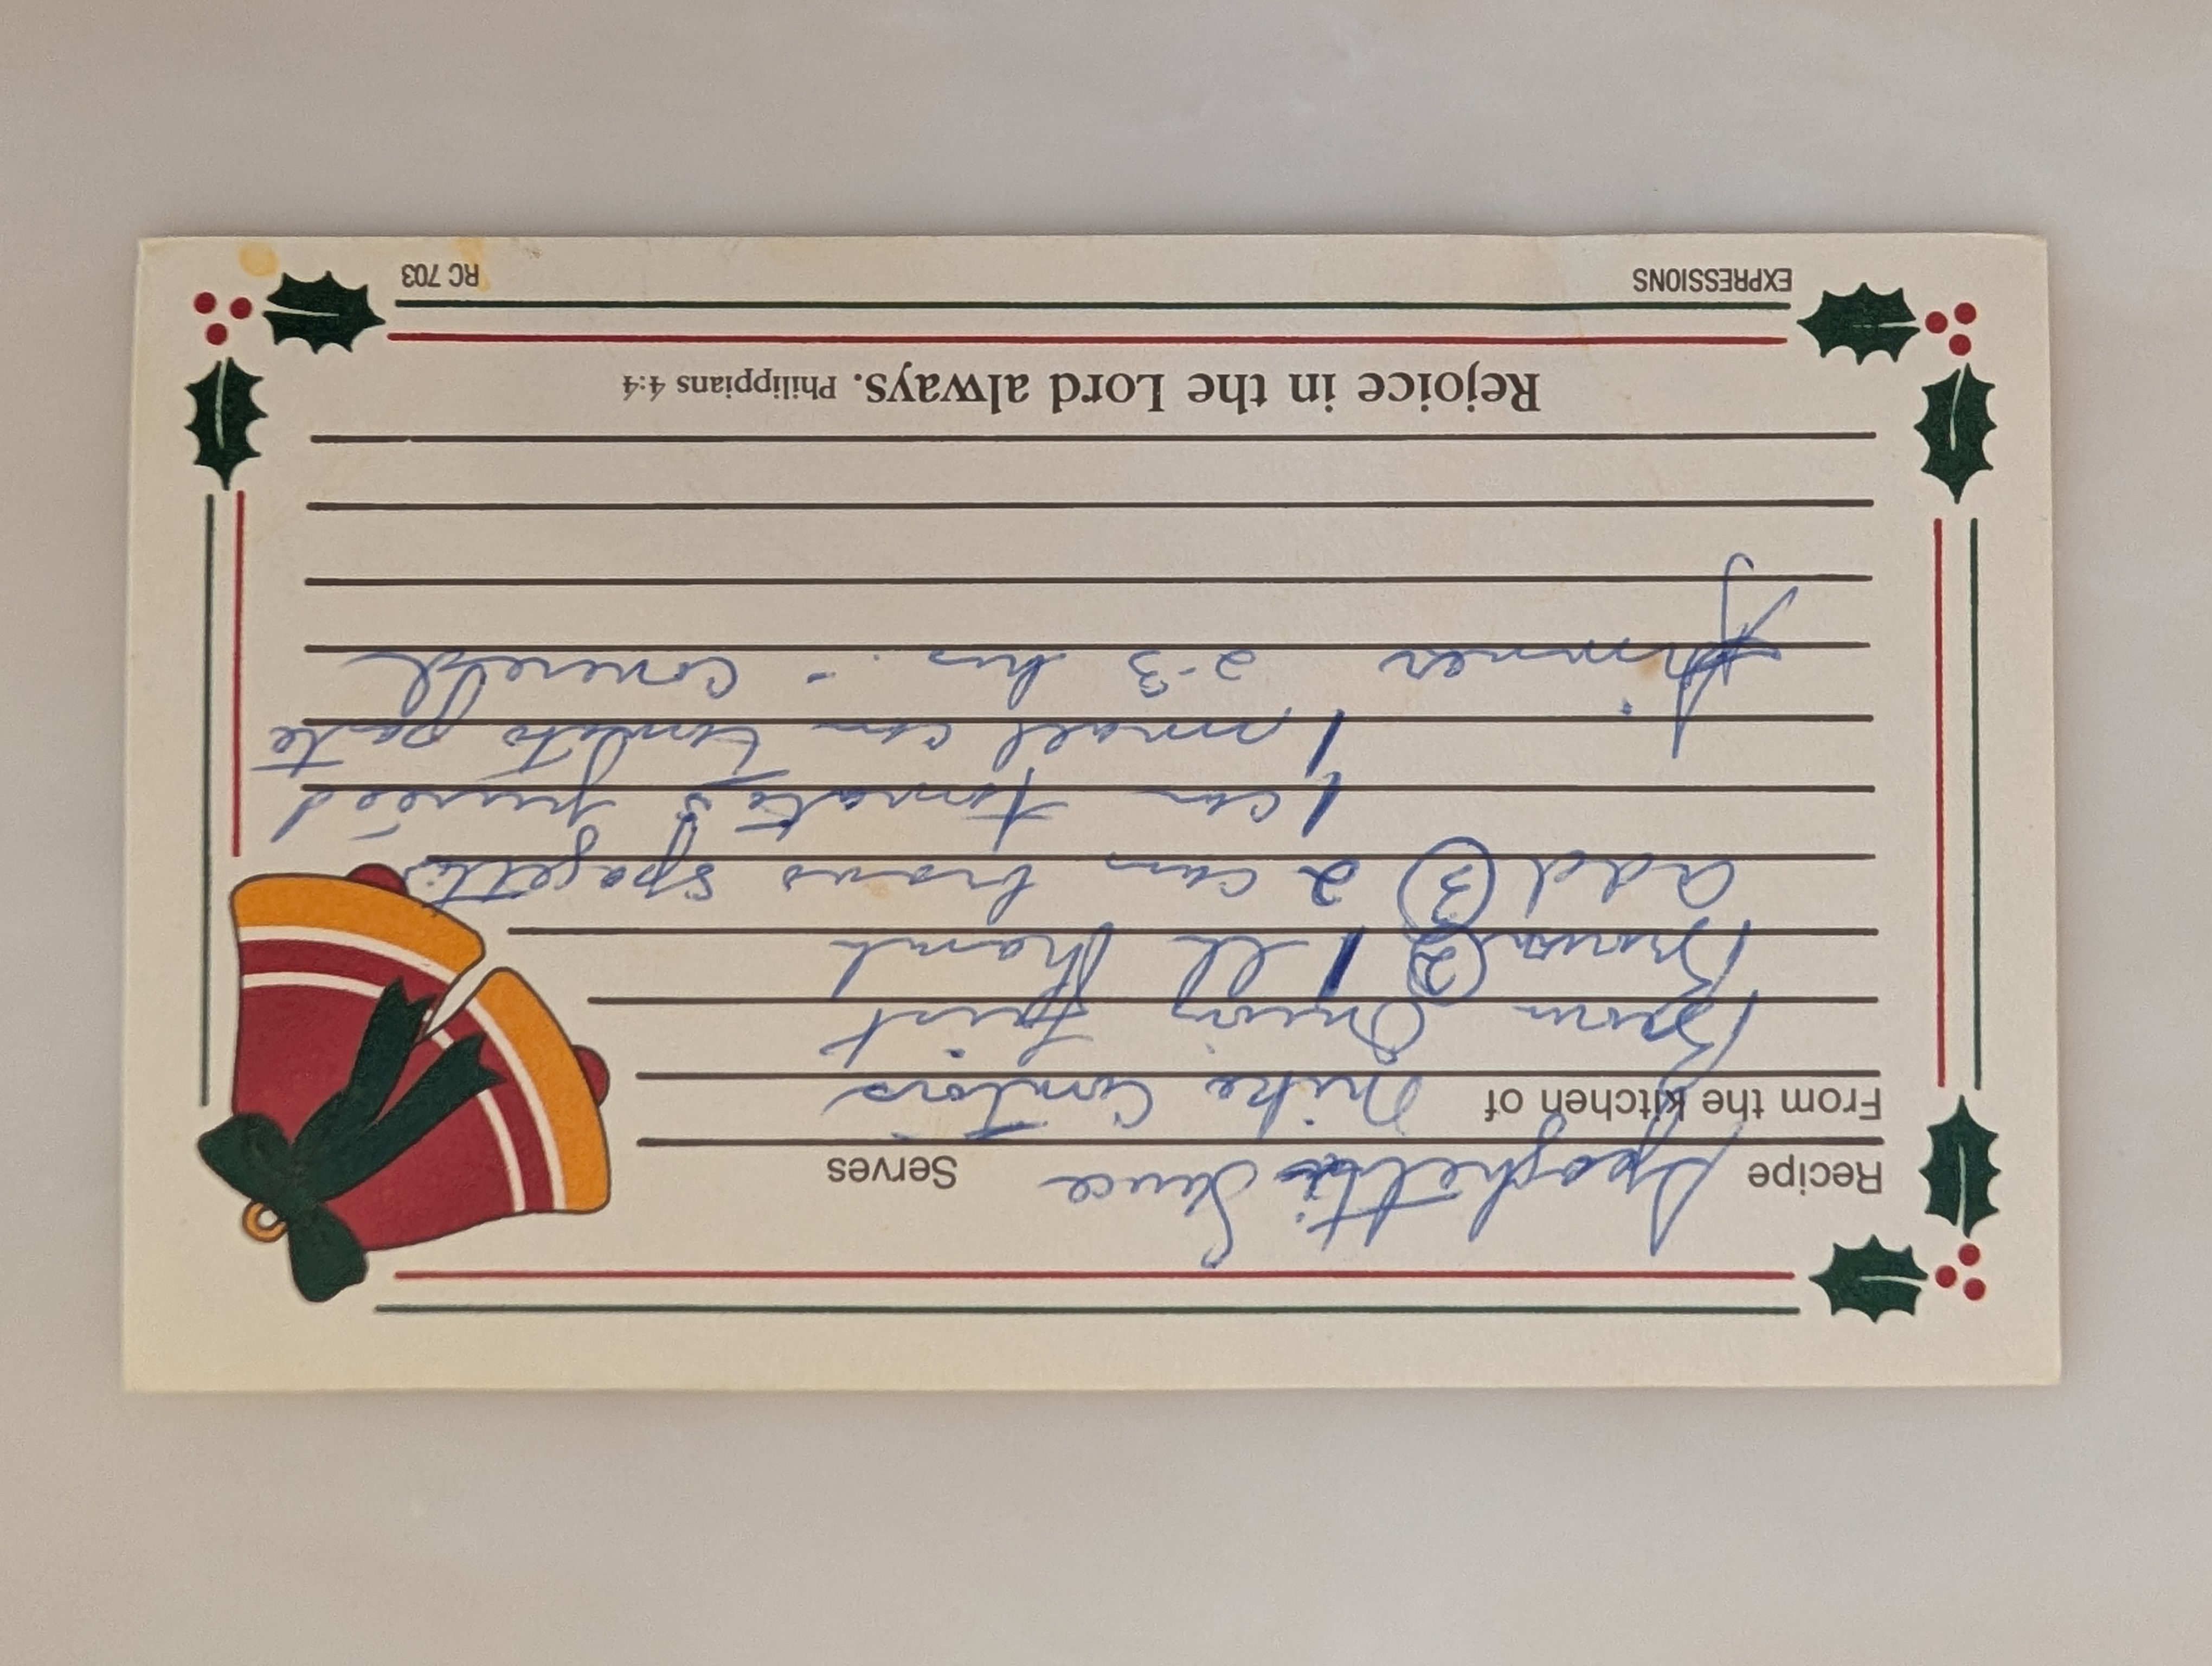 Recipe Spaghetti Sauce Serves
From the kitchen of Mike
Brown Onions first
Brown ② 1 lb
add ③ 2 can spagetti
1 can tomato's puréed
1 small can tomato paste
Simmer 2-3 hrs. - covered
Rejoice in the Lord always. Philippians 4:4
EXPRESSIONS RC 703